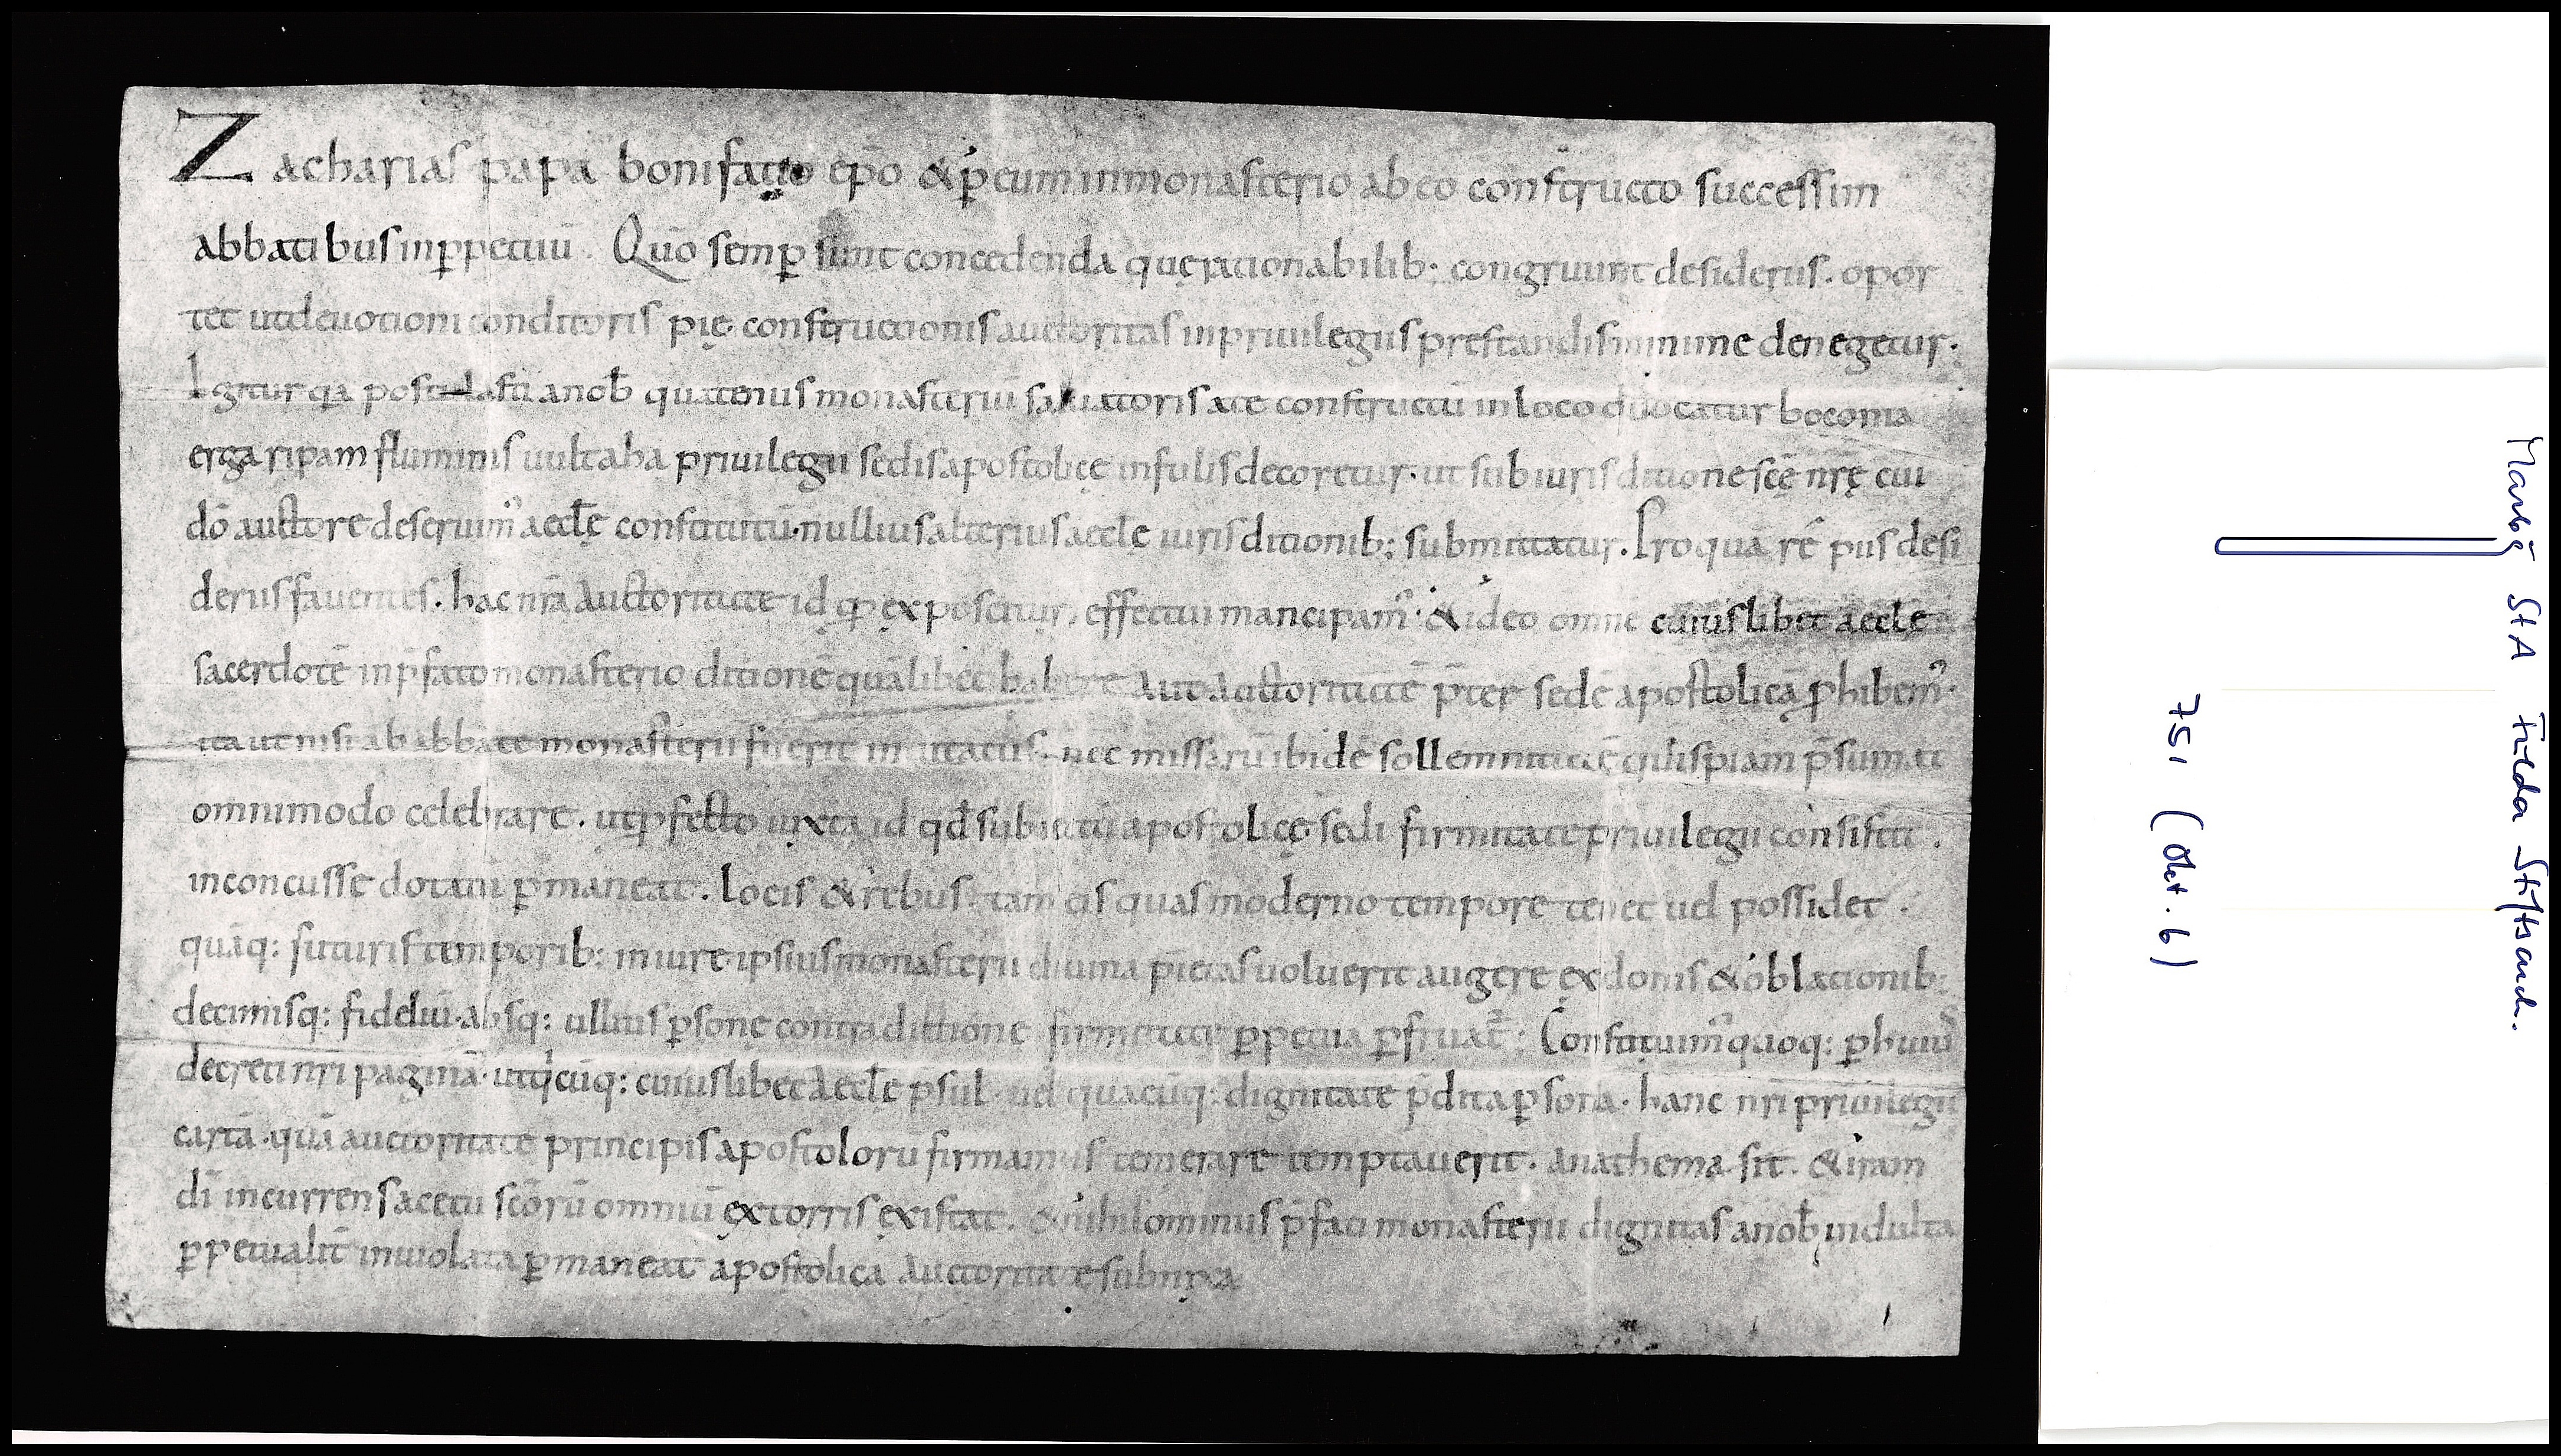 Zacharias papa bonifatio ep̄o & p̄ eum inmonasterio ab eo constructo successim
abbatibus inp̲petuū. Quō semp̲ sunt concedenda quę rationabilib; congruunt desideriis. opor
tet utdeuotioni conditoris pię constructionis auctoritas inpriuilegiis prestandis minime denegetur.
Igitur qa postulasti anob̄ quatenus monasteriū saluatoris ate constructū inloco q̇ uocatur boconia
erga ripam fluminis uultaha priuilegii sedis apostolicę infulis decoretur. ut sub iurisditione scē nr̄ę cui
dō auctore deseruim᾽ aecl̄ę constitutū. nullius alterius aecl̄e iurisditionib; submittatur. Pro qua rē piis desi
deriis fauentes. hac nr̄a auctoritate id qđ exposcitur, effectui mancipam᾽. & ideo omnē cuiuslibet aecl̄ę
sacerdotē inp̄fato monasterio ditionē quālibet habere aut auctoritatē p̄ter sedē apostolicā p̲hibem᾽.
ita ut nisi ab abbate monasterii fuerit inuitatus. nec missarū ibidē sollemnitatē quispiam p̄sumat
omnimodo celebrare. ut p̲fecto iuxta id qđ subiectū apostolicę sedi firmitate priuilegii consistit.
inconcusse dotatū p̲maneat. locis & rebus. tam eis quas moderno tempore tenet uel possidet.
quāq: futuris temporib: iniure ipsius monasterii diuina pietas uoluerit augere ex donis & oblationib:
decimisq: fideliū. absq: ullius p̲sonę contradittione firmitate p̲petua p̲fruat᾽. Constituim᾽ quoq: p̲ huiū
decreti nr̄i paginā. ut q̇cūq: cuiuslibet aecl̄ę p̄sul. uel quacūq: dignitate p̄dita p̲sona. hanc nr̄i priuilegii
cartā. quā auctoritate principis apostolorū firmamus temerare temptauerit. anathema sit. & iram
dī incurrens acetu scōrū omniū extorris existat. & nihilominus p̄fati monasterii dignitas anob̄ indulta
p̲petualit̄ inuiolata p̲maneat apostolica auctoritate subnixa
Marbg StA Fulda Stiftsarch.
751 (Okt. 6)